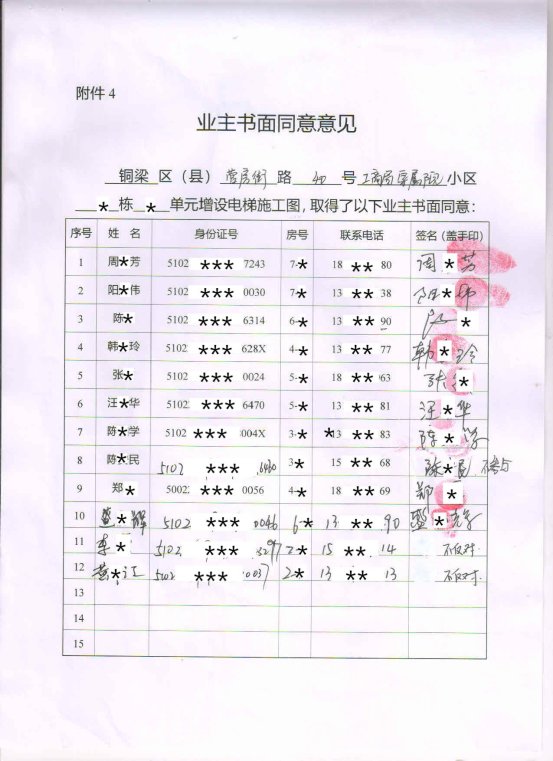 附件4
业主书面同意意见
铜梁 区（县） 营房街 路 40 号 工商局家属院 小区
* 栋 * 单元增设电梯施工图，取得了以下业主书面同意：
序号 姓 名 身份证号 房号 联系电话 签名（盖手印）
1 周*芳 5102 *** 7243 7-* 18 ** 80 周*芳
2 阳*伟 5102 *** 0030 7-* 13 ** 38 阳*伟
3 陈* 5102 *** 6314 6-* 13 ** 90 *
4 韩*玲 5102 *** 628X 4-* 13 ** 77 韩*玲
5 张* 5102 *** 0024 5-* 18 ** 63 张*
6 汪*华 5102 *** 6470 5-* 13 ** 81 汪*华
7 陈*学 5102 *** 004X 3-* *13 ** 83 陈*学
8 陈*民 5102 *** 6460 3* 15 ** 68 陈*民 不参与
9 郑* 5002 *** 0056 4-* 18 ** 69 郑*
10 *辉 5102 *** 0046 6-* 13 ** 90 *
11 李* 5102 *** 3297 2-* 15 ** 14 不反对
12 黄*江 5102 *** 0037 2-* 13 ** 13 不反对
13
14
15